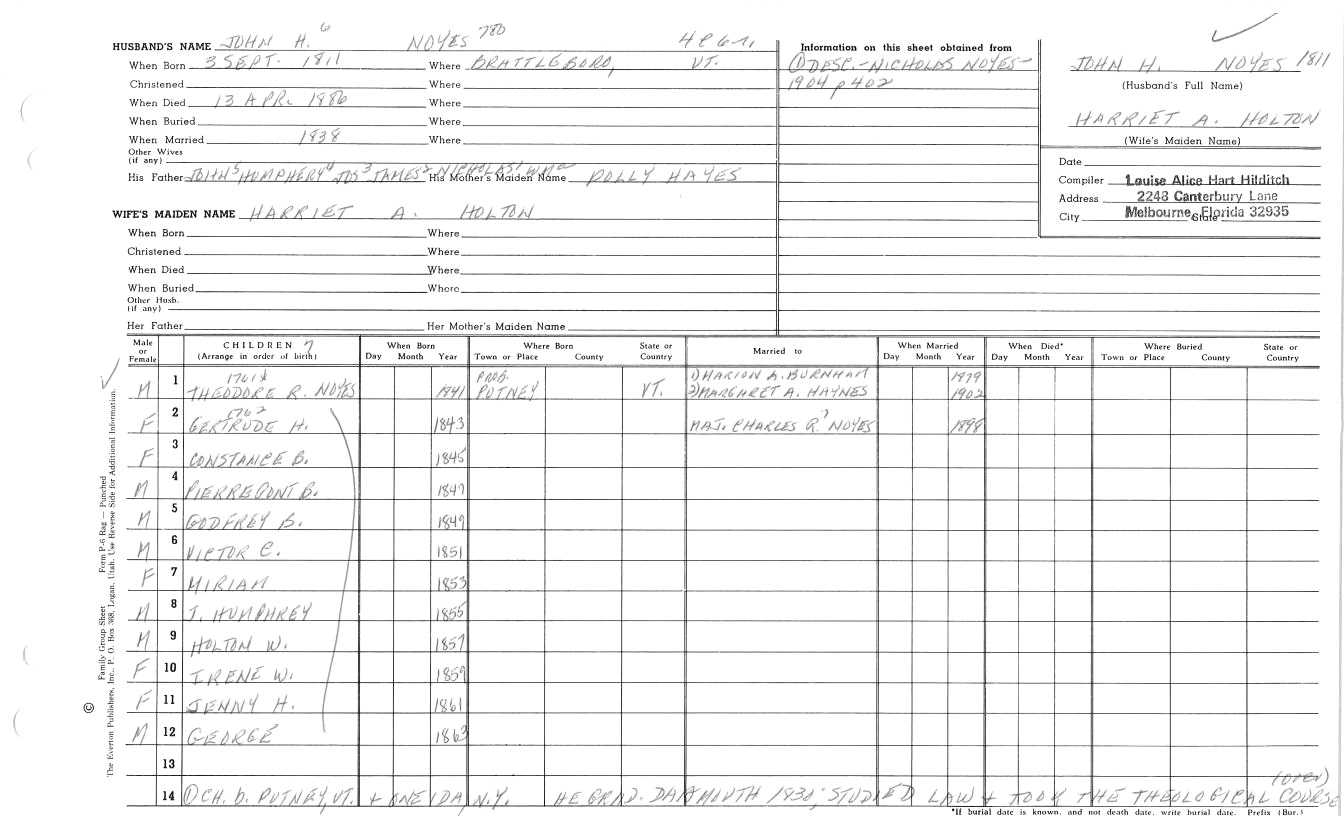 HUSBAND'S NAME JOHN H. 6 NOYES 780
When Born 3 SEPT. 1811 Where BRATTLEBORO, VT.
Christened Where
When Died 13 APR. 1886 Where
When Buried Where
When Married 1838 Where
Other Wives
(if any)
His Father JOHN 5 HUMPHERY 4 JOS 3 JAMES 2 NICHOLAS 1 WM His Mother's Maiden Name POLLY HAYES
WIFE'S MAIDEN NAME HARRIET A. HOLTON
When Born Where
Christened Where
When Died Where
When Buried Where
Other Husb.
(if any)
Her Father Her Mother's Maiden Name
Information on this sheet obtained from
① DESC. - NICHOLAS NOYES -
1904 p 402
JOHN H. NOYES 1811
(Husband's Full Name)
HARRIET A. HOLTON
(Wife's Maiden Name)
Date
Compiler Louise Alice Hart Hilditch
Address 2248 Canterbury Lane
City Melbourne, Florida 32935 State
Male or Female CHILDREN (Arrange in order of birth) When Born Day Month Year Where Born Town or Place County State or Country Married to When Married Day Month Year When Died* Day Month Year Where Buried Town or Place County State or Country
M 1 1761 THEODORE R. NOYES 1841 PROB. PUTNEY VT. 1) MARION A. BURNHAM 1979
2) MARGARET A. HAYNES 1902
F 2 1762 GERTRUDE H. 1843 MAJ. CHARLES R. 7 NOYES 1898
F 3 CONSTANCE B. 1845
M 4 PIERREPONT B. 1847
M 5 GODFREY B. 1849
M 6 VICTOR C. 1851
F 7 MIRIAM 1853
M 8 J. HUMPHREY 1855
M 9 HOLTON W. 1857
F 10 IRENE W. 1859
F 11 JENNY H. 1861
M 12 GEORGE 1863
13
(over)
14 ① CH. b. PUTNEY, VT. + ONEIDA, N.Y. HE GRAD. DARTMOUTH 1830; STUDIED LAW + TOOK THE THEOLOGICAL COURSE
*If burial date is known, and not death date, write burial date. Prefix (Bur.)
© The Everton Publishers, Inc., P. O. Box 368, Logan, Utah. Use Reverse Side for Additional Information.
Family Group Sheet Form P-6 Rag — Punched